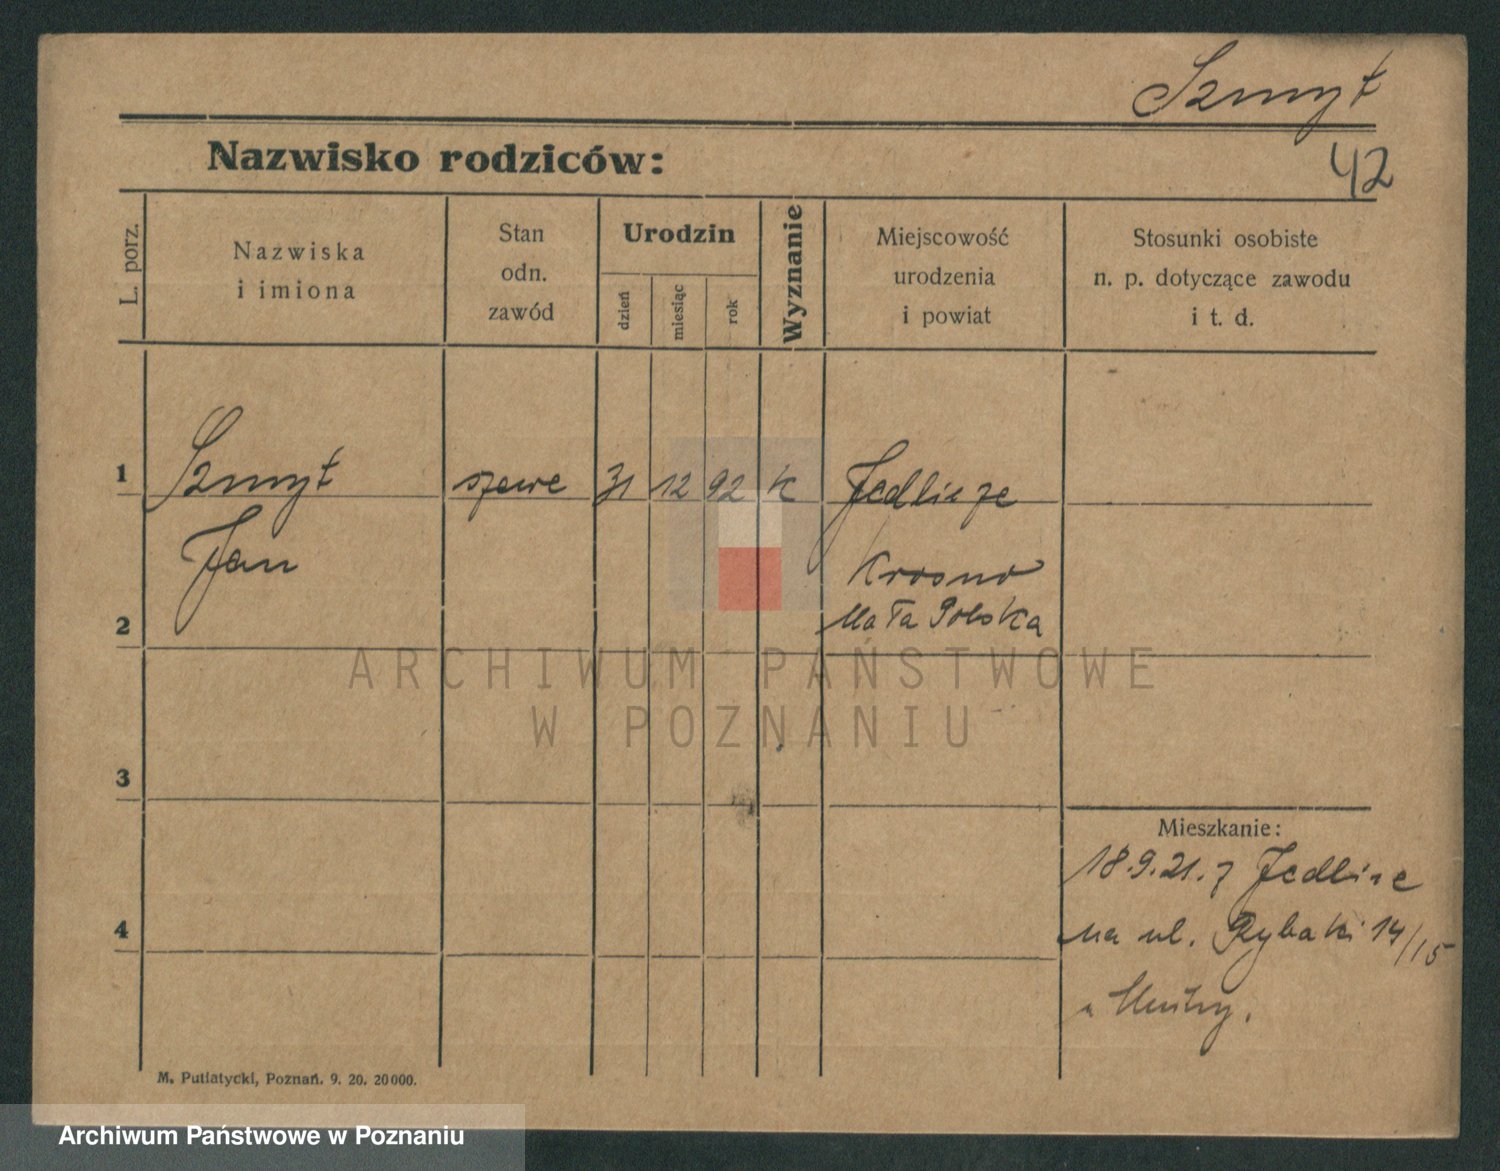 Szmyt
Nazwisko rodziców:
42
L. porz.
Nazwiska
i imiona
Stan
odn.
zawód
Urodzin
dzień
miesiąc
rok
Wyznanie
Miejscowość
urodzenia
i powiat
Stosunki osobiste
n. p. dotyczące zawodu
i t. d.
1
Szmyt szewc 31 12 92 K Jedlicze
Jan
Krosno
2
Mała Polska
ARCHIWUM PAŃSTWOWE
W POZNANIU
3
Mieszkanie:
18.9.21. z Jedlicze
4
na ul. Rybaki 14/15
M. Putiatycki, Poznań. 9. 20. 20000.
Archiwum Państwowe w Poznaniu